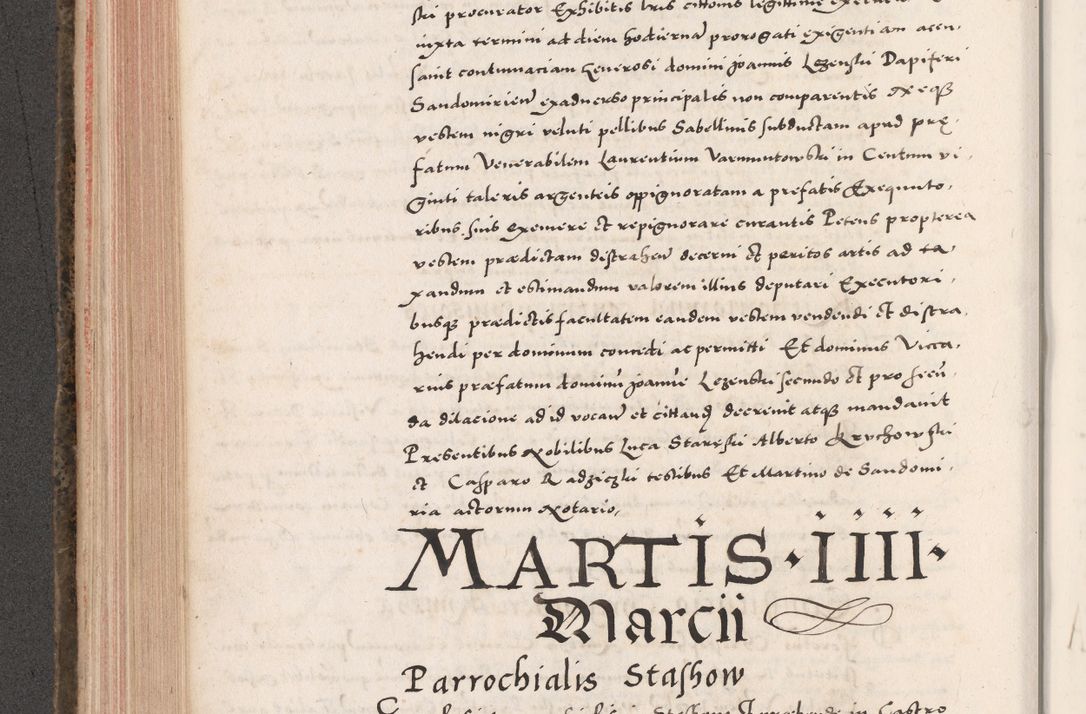 ski procurator Exhibitis lris cittonis legittime
iuxta termini ad diem hodiernā prorogati exigentiam accu,
sauit contumaciam Generosi domini Joannis Lezenski Dapiferi
Sandomirieñ ex aduerso principalis non comparentis
vestem nigri veluti pellibus Sabellinis subductam apud prę,
fatum Venerabilem Laurentium Varmuntowski in Centum vi,
ginti taleris argenteis oppignoratam a prefatis Exequuto,
ribus suis exemere et repignorare curantis Petens propterea
vestem prædictam distraheñ decerni et peritos artis ad ta,
xandum et estimandum valorem illius deputari Executori,
busq prædictis facultatem eandem vestem vendendi et distra,
hendi per dominum concedi ac permitti Et dominus Vicca,
rius præfatum dominū Joannē Lezenski secundo et pro secū,
da dilacione ad id vocañ et cittand decreuit atq mandauit
Presentibus Nobilibus Luca Staręski Alberto Kruchowski
et Casparo Radziczki testibus Et Martino de Sandomi,
ria actorum Notario,
MARTIS · IIII ·
Marcii
Parrochialis Stashow
in Castro